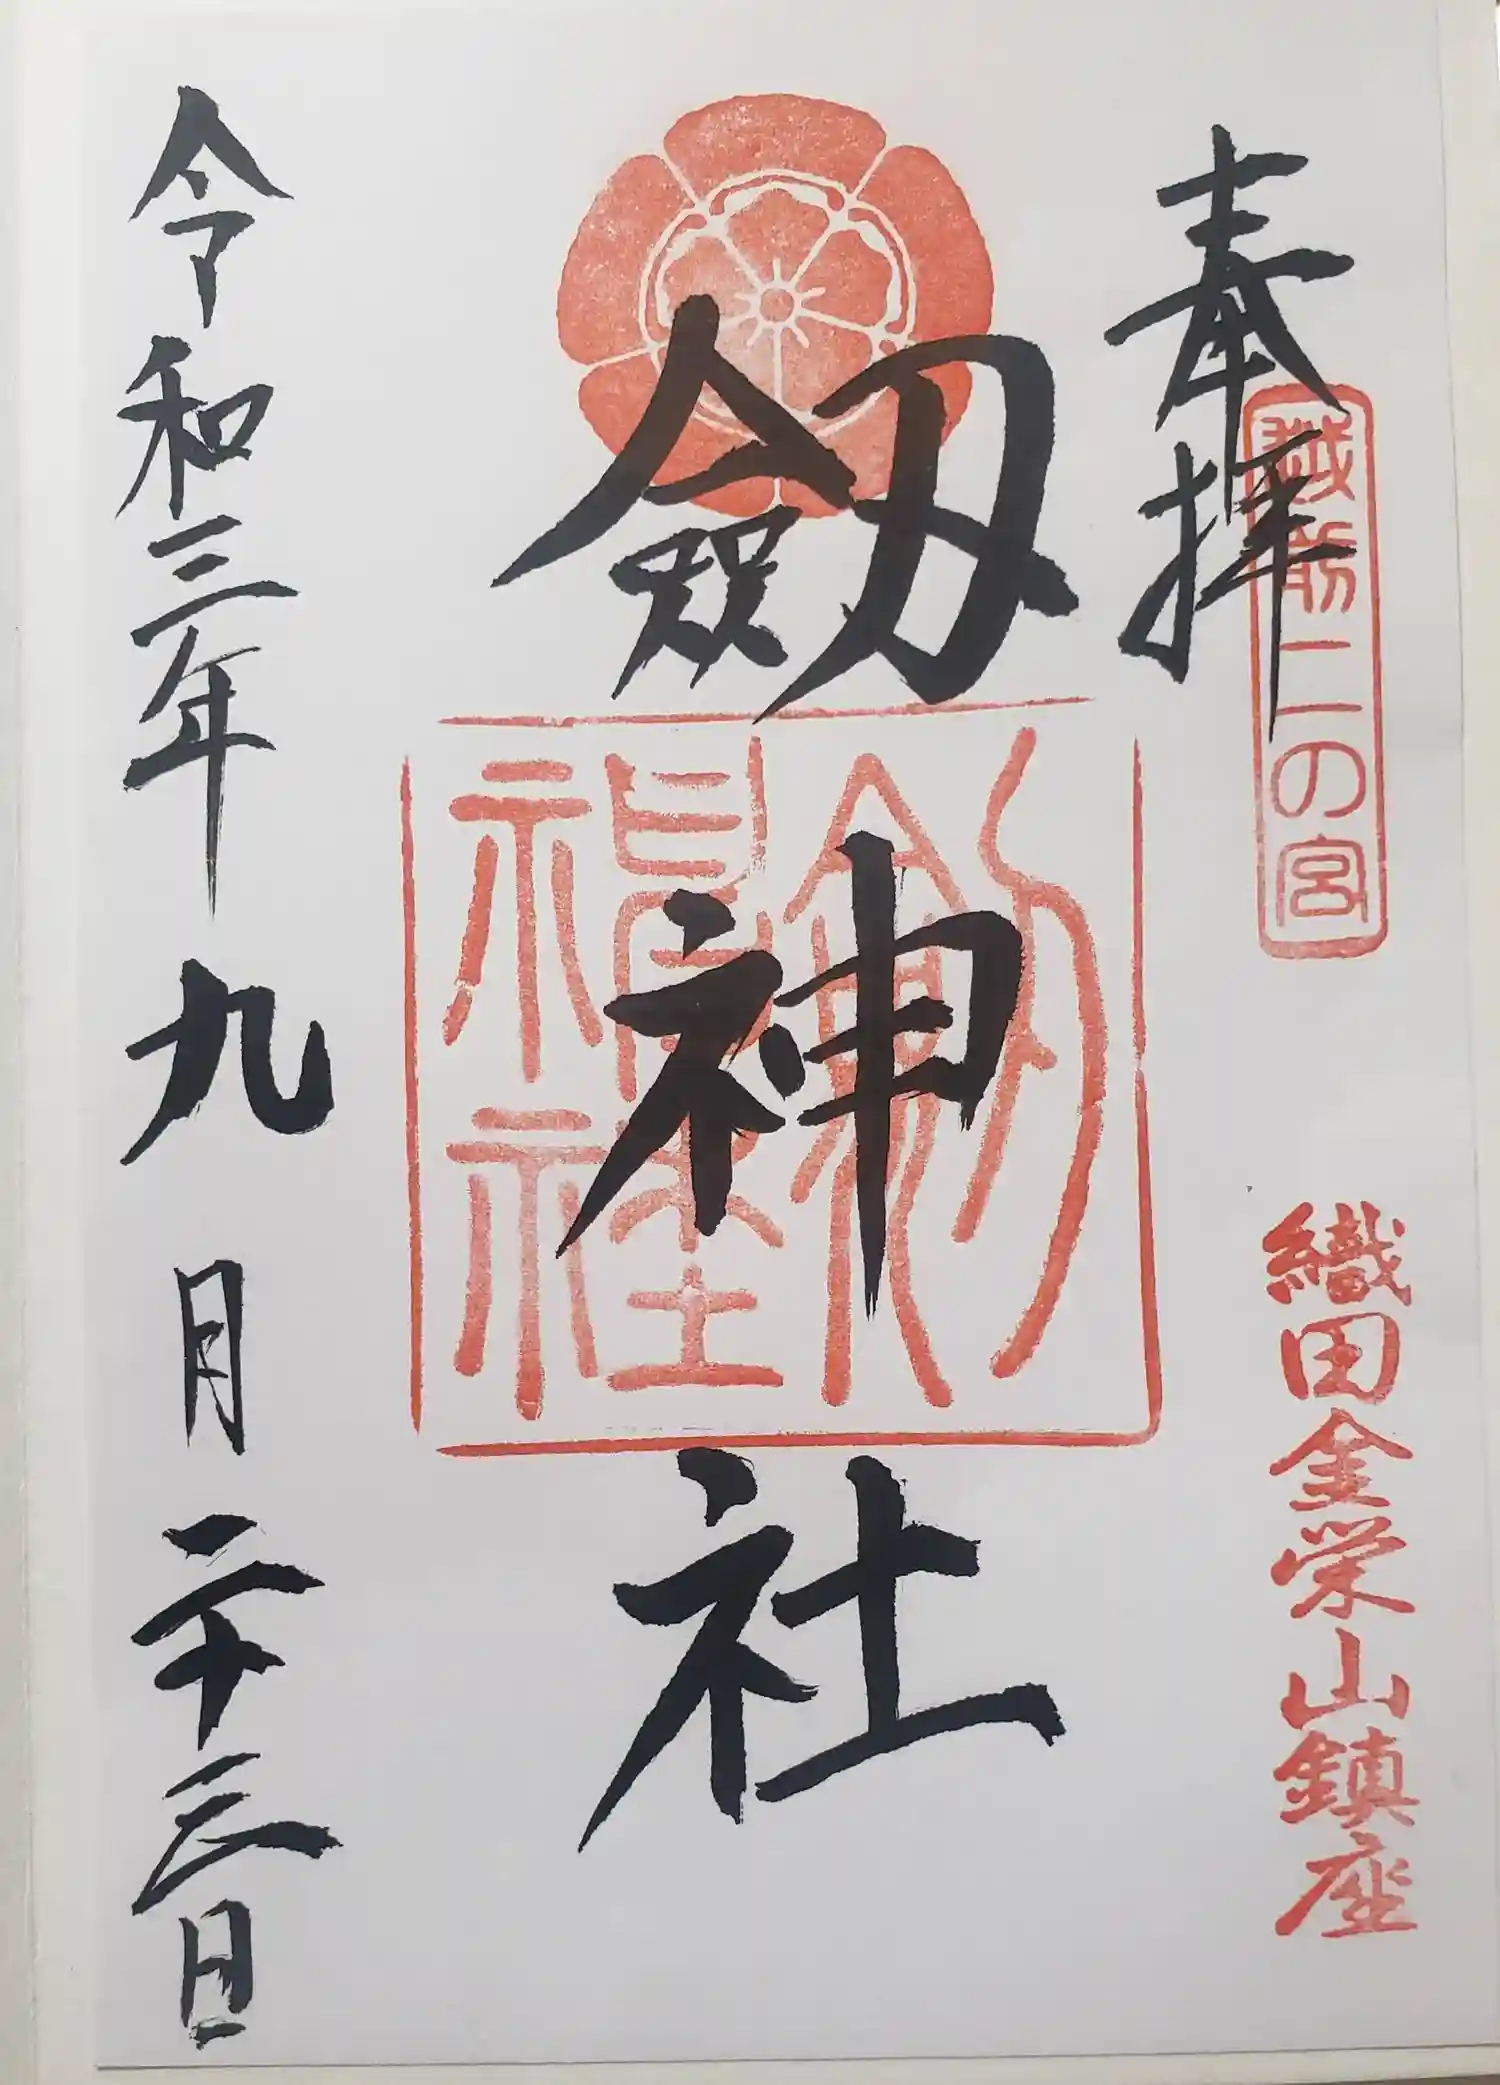 奉拝
越前二の宮
織田金栄山鎮座
劔神社
令和三年九月二十三日